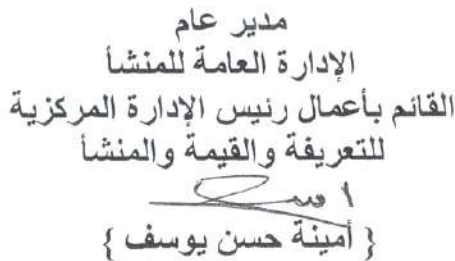 مدير عام
الإدارة العامة للمنشأ
القائم بأعمال رئيس الإدارة المركزية
للتعريفة والقيمة والمنشأ
{ أمينة حسن يوسف }